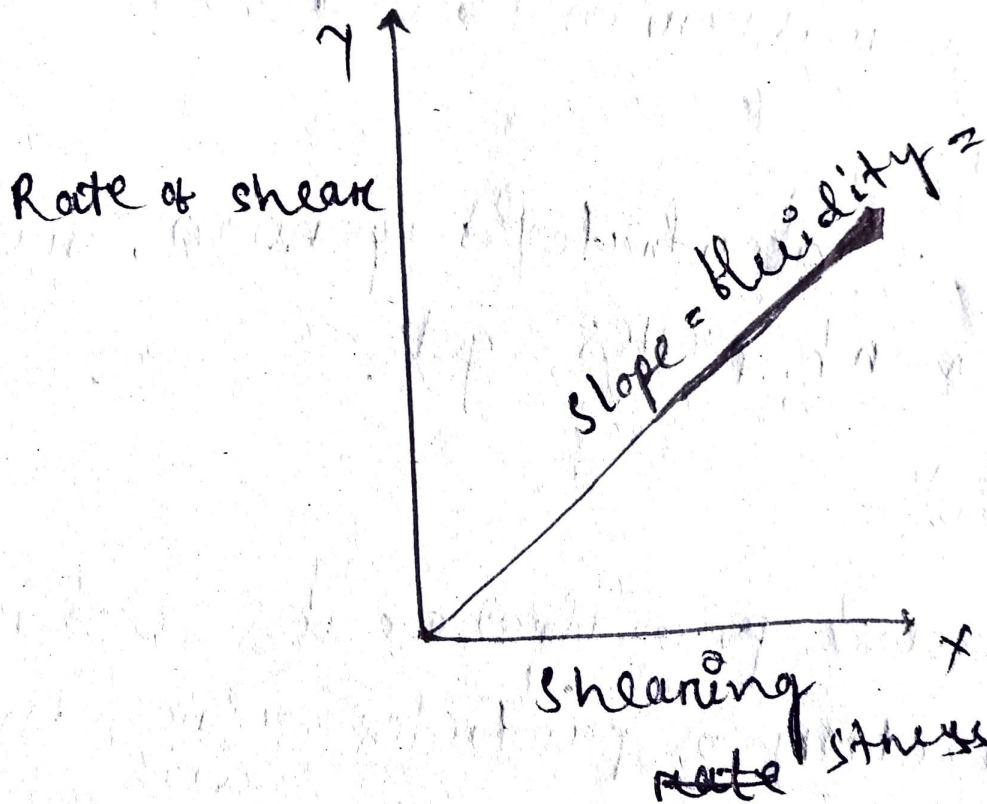 Y
Rate of shear
slope = fluidity =
X
Shearing
rate stress